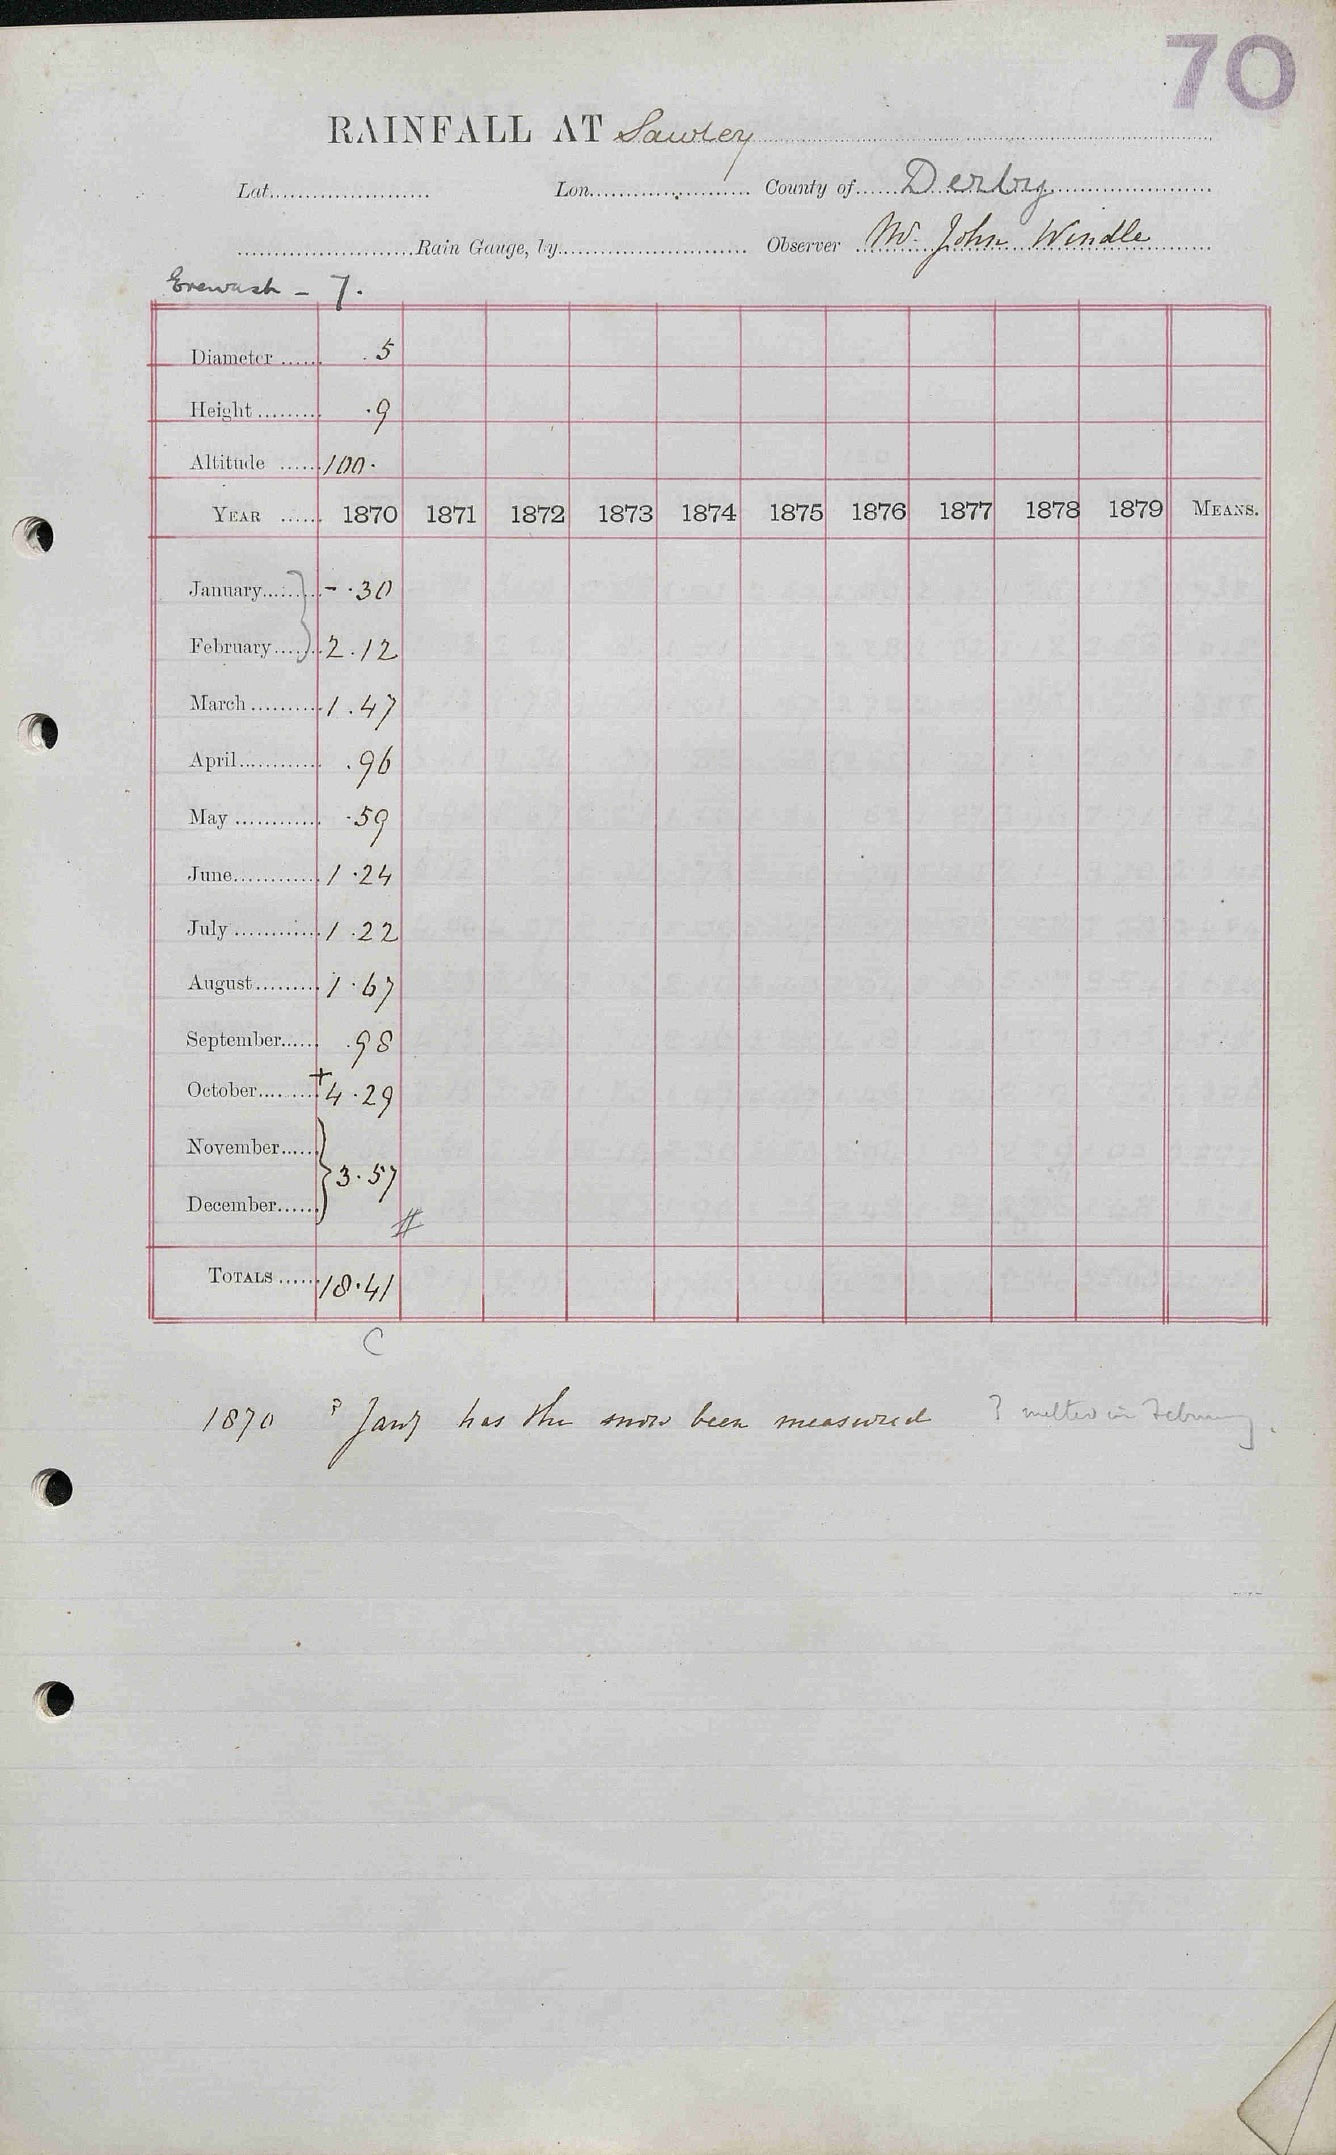 70
RAINFALL AT Sawley
Lat. Lon. County of Derby
Rain Gauge, by Observer Mr. John Windle
Erewash - 7.
Diameter 5
Height .9
Altitude 100.
YEAR 1870 1871 1872 1873 1874 1875 1876 1877 1878 1879 MEANS.
January - .30
February 2.12
March 1.47
April .96
May .59
June 1.24
July 1.22
August 1.67
September .98
October + 4.29
November
3.57
December
#
TOTALS 18.41
C
1870 ? Jany has the snow been measured ? melted in February.